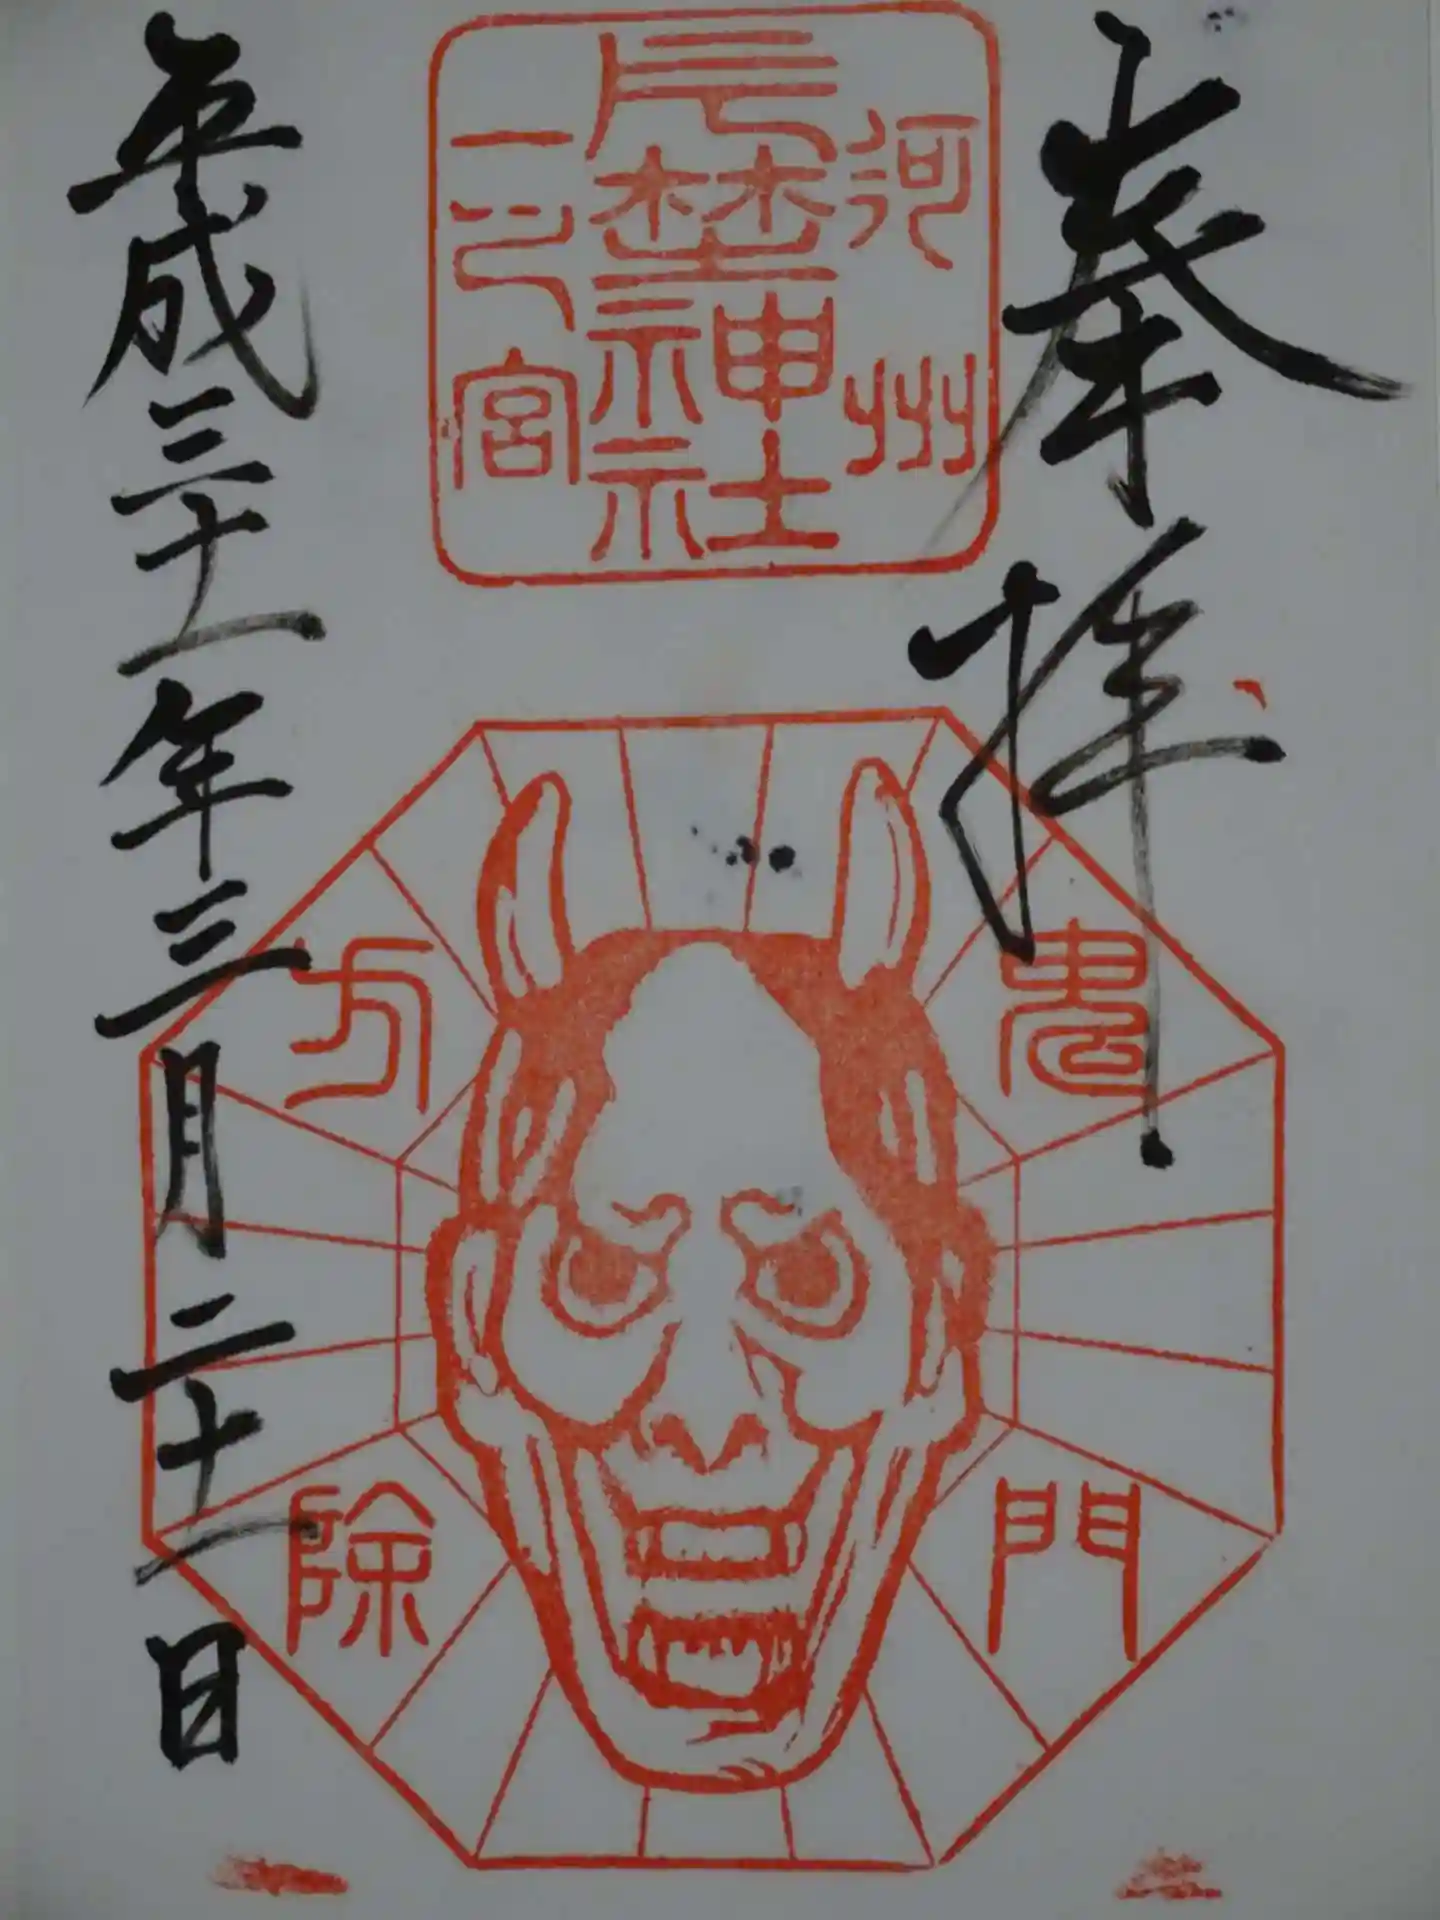 奉拝
河州
片埜神社
一之宮
鬼門
方除
平成三十一年三月二十一日